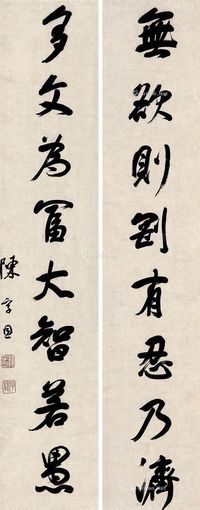 無欲則剛有忍乃濟
多文為富大智若愚
陳孚恩